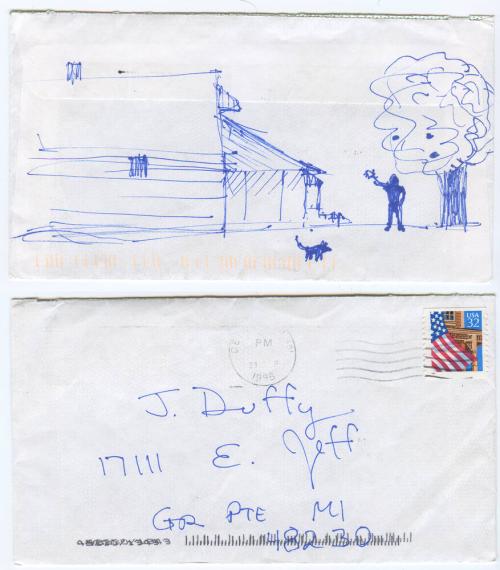 USA
32
PM
1995
J. Duffy
17111 E. Jeff
GR PTE MI
48230